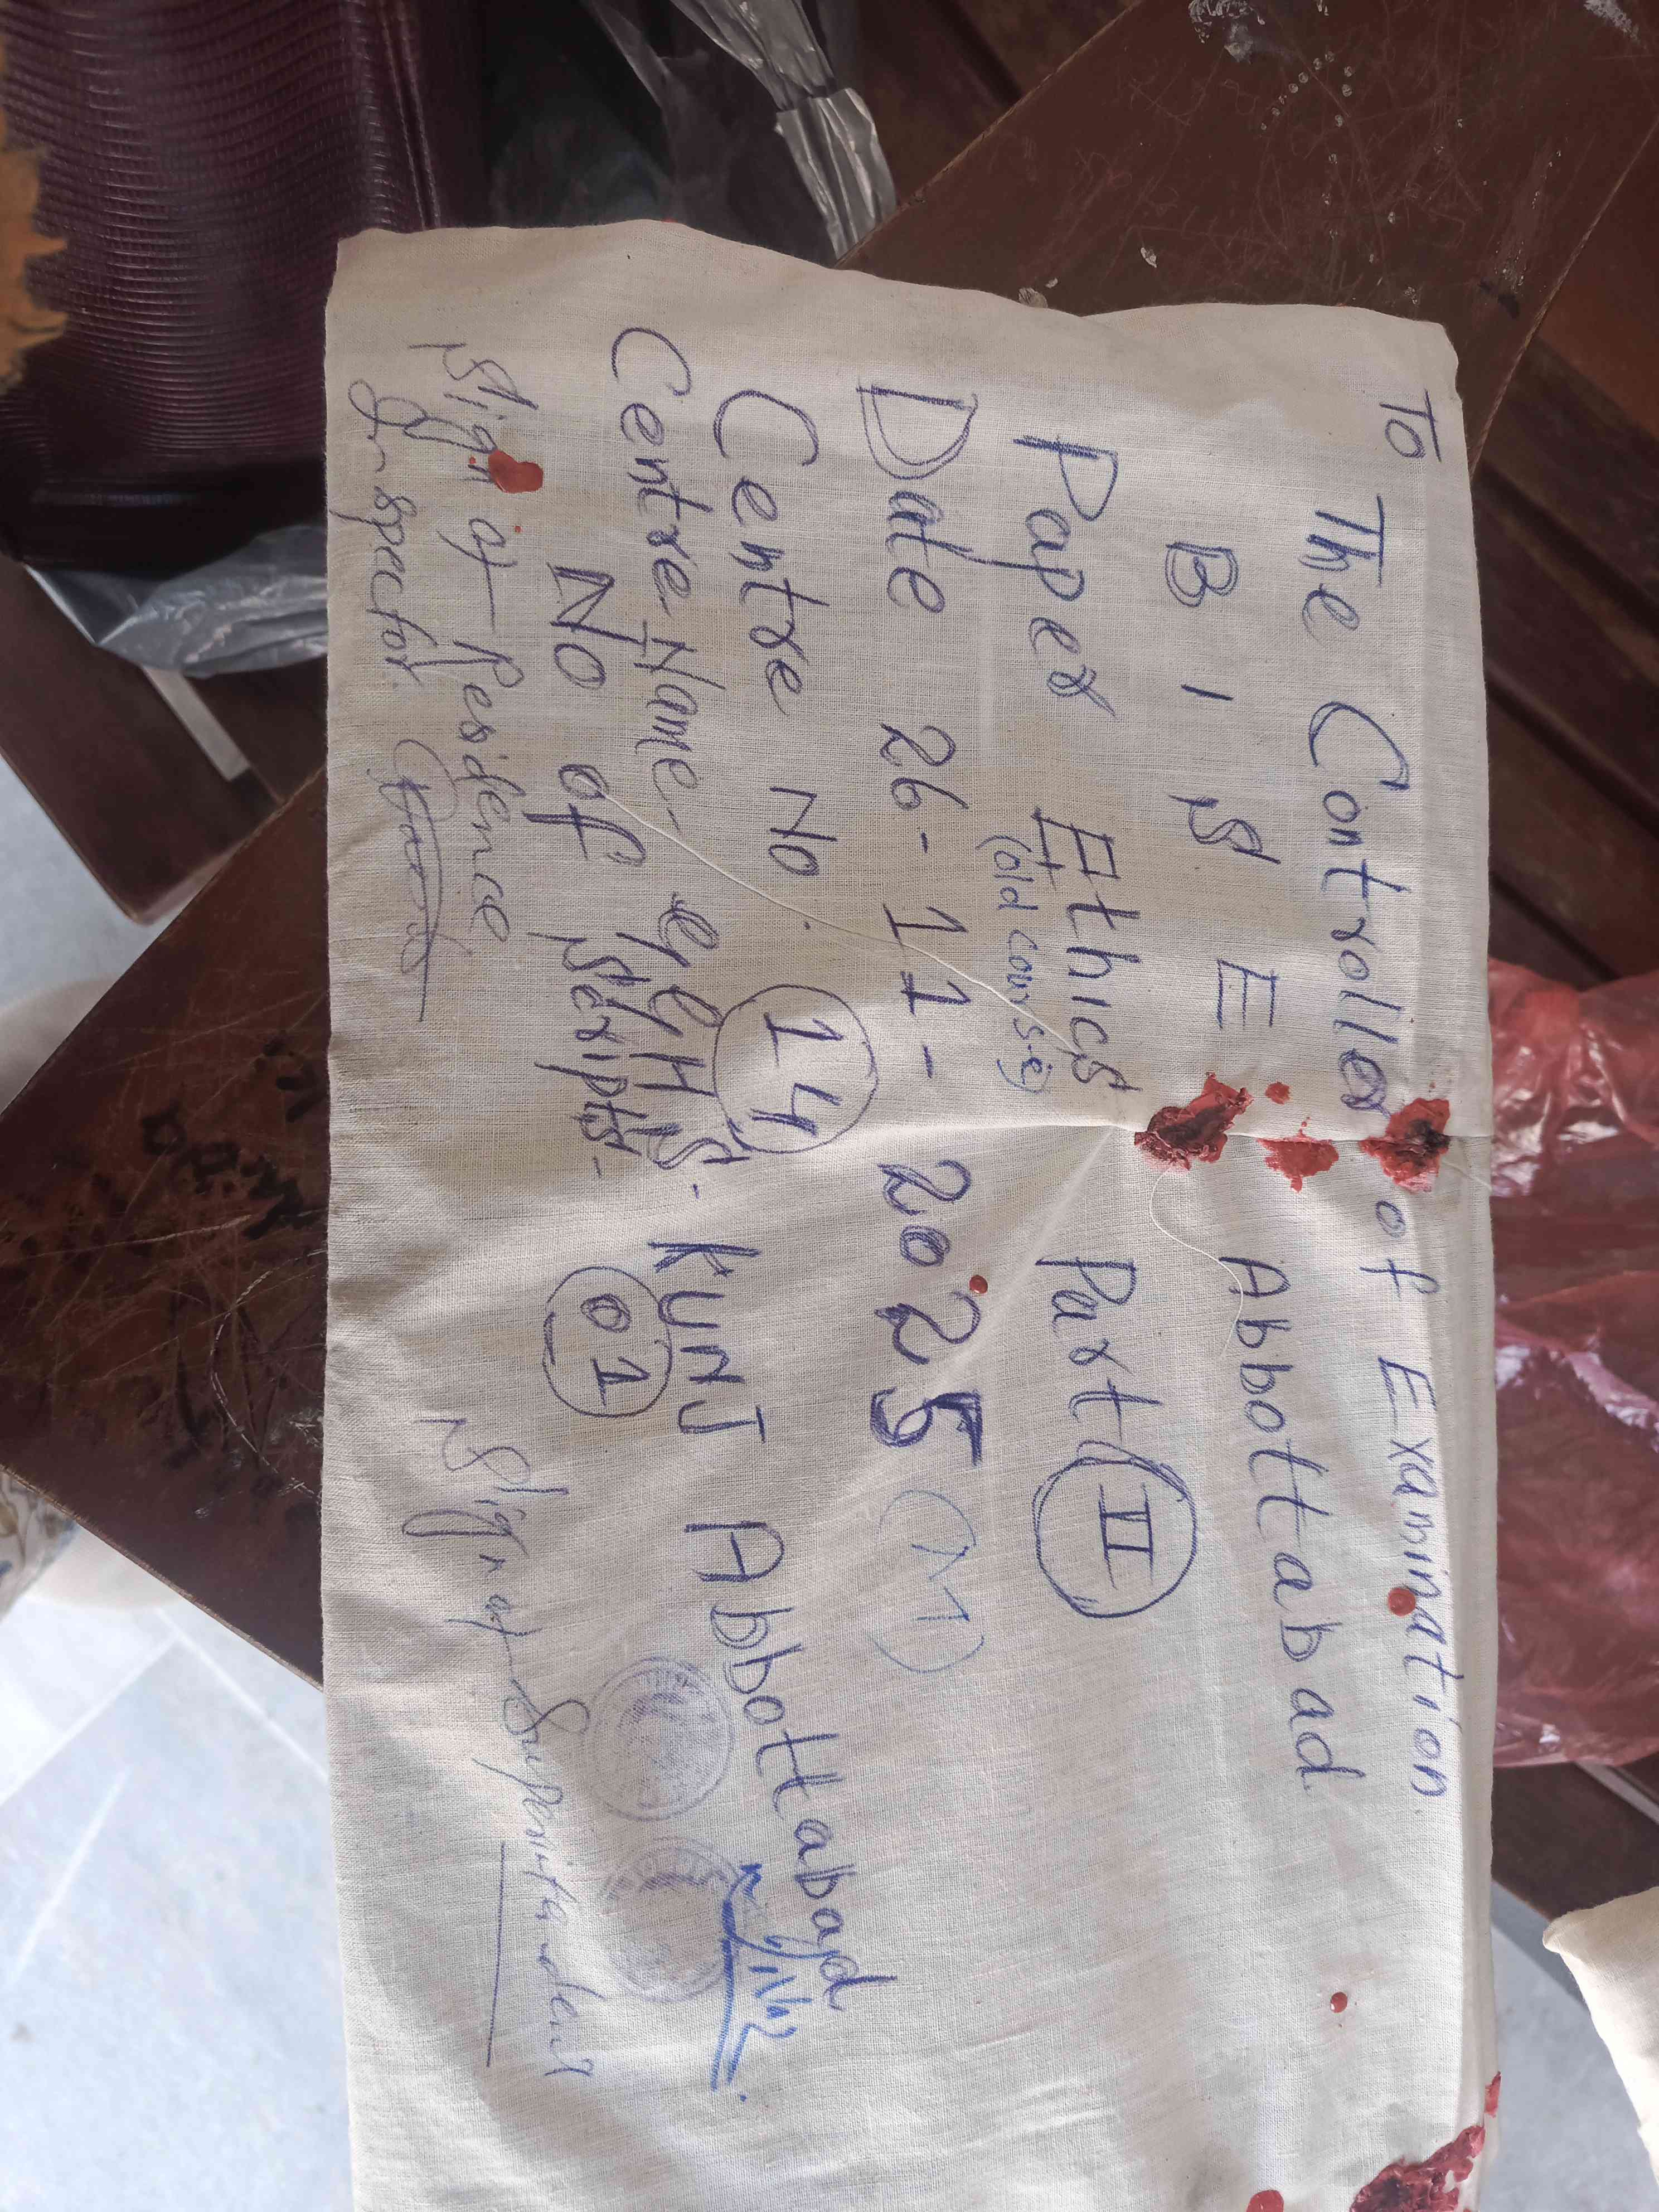 To
The Controller of Examination
B I S E Abbottabad
Paper Ethics Part II
(old course)
Date 26-11-2025 (M)
Centre No. 14
Centre Name GGHSS- KUNJ Abbottabad
No of Scripts- 01
Sign of Residence
Inspector.
Sign of Superintendent